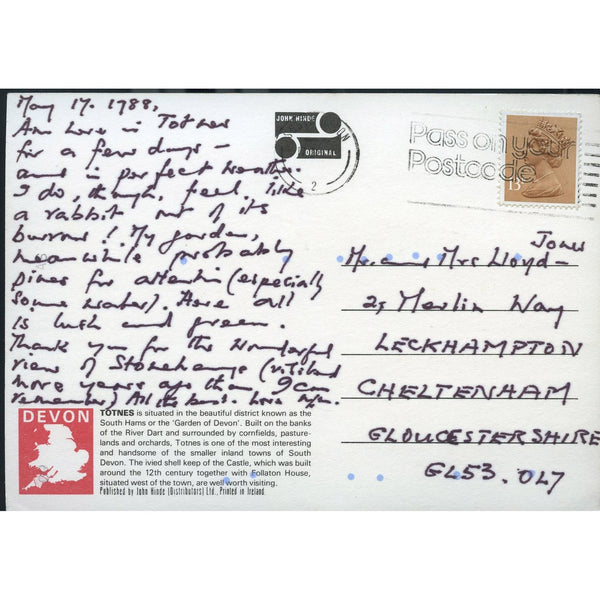 May 17. 1988,
Am here in Totnes
for a few days –
and in perfect weather.
I do, though, feel like
a rabbit out of its
burrow!! My garden,
meanwhile probably
pines for attention (especially
some water). Here all
is lush and green.
Thank you for the wonderful
view of Stonehenge (visited
more years ago than I can
remember) All the best. Love
JOHN HINDE
ORIGINAL
2
Pass on your
Postcode
13
Mr. and Mrs Lloyd-
Jones
25 Merlin Way
LECKHAMPTON
CHELTENHAM
GLOUCESTERSHIRE
GL53. 0L7
DEVON
TOTNES is situated in the beautiful district known as the
South Hams or the 'Garden of Devon'. Built on the banks
of the River Dart and surrounded by cornfields, pasture-
lands and orchards, Totnes is one of the most interesting
and handsome of the smaller inland towns of South
Devon. The ivied shell keep of the Castle, which was built
around the 12th century together with Follaton House,
situated west of the town, are well worth visiting.
Published by John Hinde (Distributors) Ltd., Printed in Ireland.